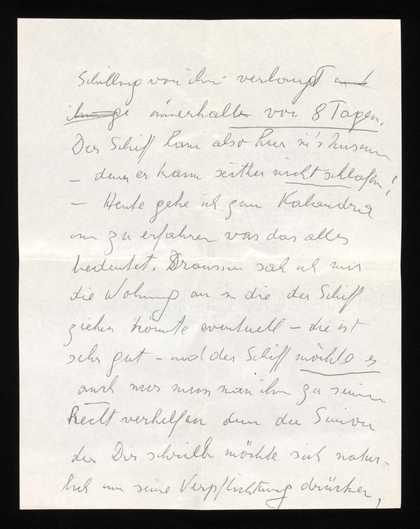 Schilling von ihm verlangt
innerhalb von 8 Tagen.
Der Schiff kam also hier in's Museum
– denn er kann seither nicht schlafen!
– Heute gehe ich zum Kalandra
um zu erfahren was das alles
bedeutet. Draussen sah ich mir
die Wohnung an in die der Schiff
ziehen könnte eventuell – die ist
sehr gut – und der Schiff möchte es
auch nur muss man ihm zu seinem
Recht verhelfen denn die
der möchte sich natür-
lich um seine Verpflichtung drücken,